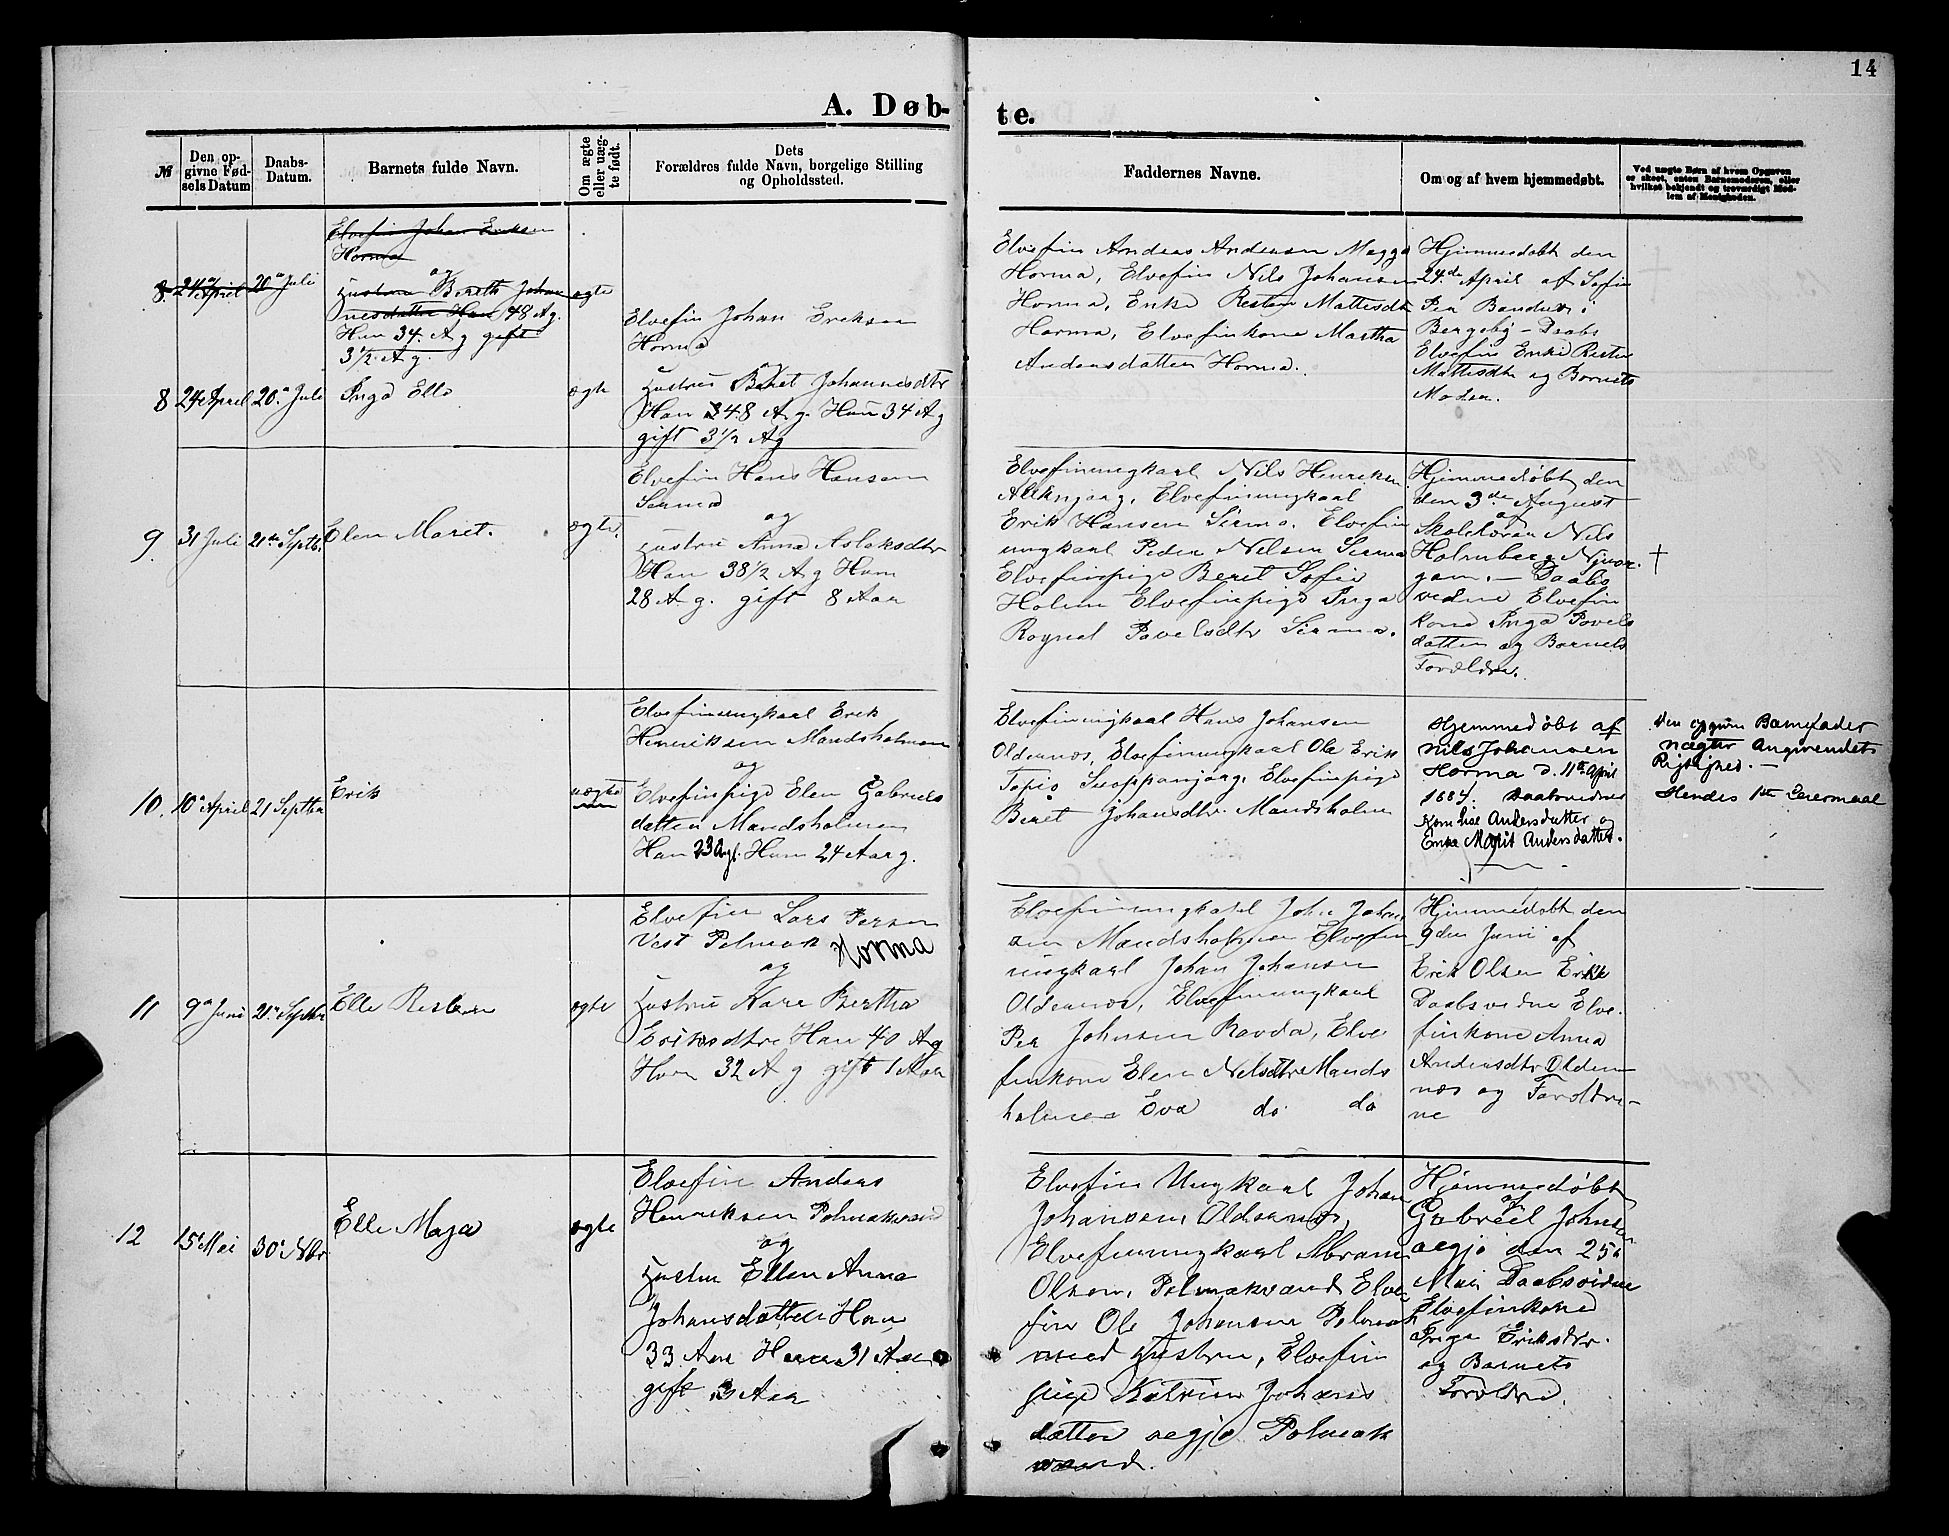 14
A. Døb-
te.
№
Den op-
givne Fød-
sels Datum
Daabs-
Datum.
Barnets fulde Navn.
Om ægte
eller uæg-
te født.
Dets
Forældres fulde Navn, borgelige Stilling
og Opholdssted.
Faddernes Navne.
Om og af hvem hjemmedøbt.
Ved uægte Børn af hvem Opgaven
er skeet, enten Barnemoderen, eller
hvilket bekjendt og troværdigt Med-
lem af Menigheden.
8. 24 April 20 Juli
Elvefin Johan Eriksen
Horma
og
Hustru Bereth Johan
nesdatter Han 48 Ag.
Hun 34. Ag gift
3 1/2 Ag.
ægte
8 24 April 20. Juli
Inga Elle
ægte
Elvefin Johan Eriksen
Horma
og
Hustru Beret Johannesdtr
Han 48 Ag. Hun 34 Ag
gift 3 1/2 Ag
Elvefin Andras Andersen Magga
Horma, Elvefin Nils Johansen
Horma, Enke Resten Mattisdt
Horma, Elvefinkone Martha
Andersdatter Horma.
Hjemmedøbt den
24de April af Sofie
Per
Bergeby - Daabs
Elvefin Enke Resten
Mattisdtr og Barnets
Moder.
9. 31 Juli 21de Septb.
Elen Maret.
ægte.
Elvefin Hans Hansen
Sirma
og
Hustru Anna Aslaksdtr
Han 38 1/2 Ag Hun
28 Ag. gift 8 Aar
Elvefinungkarl Nils Henriksen
Alknjarg, Elvefinungkarl
Erik Hansen Sirma. Elvefin
ungkarl Peder Nilsen Sirma
Elvefinpige Beret Sofie
Holm Elvefinpige Inga
Ragnel Pavelsdtr Sirma.
Hjemmedøbt den
den 3de August
af
Skolelærer Nils
Holmberg Njuor-
gam. - Daabs
vidne Elvefin
kone Inga Povels
datter og Barnets
Forældre.
†
10. 10 April 21 Septbr
Erik
uægte
Elvefinungkarl Erik
Henriksen Mandsholmen
og
Elvefinpige Elen Gabriels
datter Mandsholmen
Han 23 Agl. Hun 24 Aar g.
Elvefinungkarl Hans Johansen
Oldernæs, Elvefinungkarl Ole Erik
Topio Suoppanjarg, Elvefinpige
Beret Johansdtr Mandsholm
Hjemmedøbt af
Nils Johansen
Horma d. 11te April
1884. Daabsvidner
Kone Lise Andersdatter og
Enke Marit Andersdatter.
Den opgivne Barnefader
nægter Angivendets
Rigtighed. -
Hendes 1ste Leiermaal
11 9 Juni 21 Septbr
Elle Risten
ægte
Elvefin Lars Persen
Vest Polmak Horma
og
Hustru Kare Bertha
Eriksdtr Han 40 Ag
Hun 32 Ag gift 1 Aar
Elvefinungkarl John Johan
sen Mandsholmen Elvefin
ungkarl Johan Johansen
Oldernæs, Elvefinungkarl
Per Johnsen Ravda, Elve
finkone Elen Nilsdtr Mands
holmen Eva do do
Hjemmedøbt den
9den Juni af
Erik Olsen Erke
Daabsvidne Elve-
finkone Anna
Andersdtr Older
næs og Forældre-
ne
12 15 Mai 30 Nbr
Elle Maja
ægte
Elvefin Anders
Henriksen Polmakvand
og
Hustru Ellen Anna
Johansdatter Han
33 Aar Hun 31 Aar
gift 3 Aar
Elvefin Ungkarl Johan
Johansen, Oldernæs,
Elvefinungkarl Abram
Olsen, Polmakvand Elve-
fin Ole Johansen Polmak
med Hustru, Elvefin
pige Katrine Johans
datter aegjo Polmak
vand.
Hjemmedøbt
af
Gabriel Johns
aegjo den 25
Mai Daabsvidne
Elvefinkone
Inga Eriksdtr.
og Barnets
Forældre.